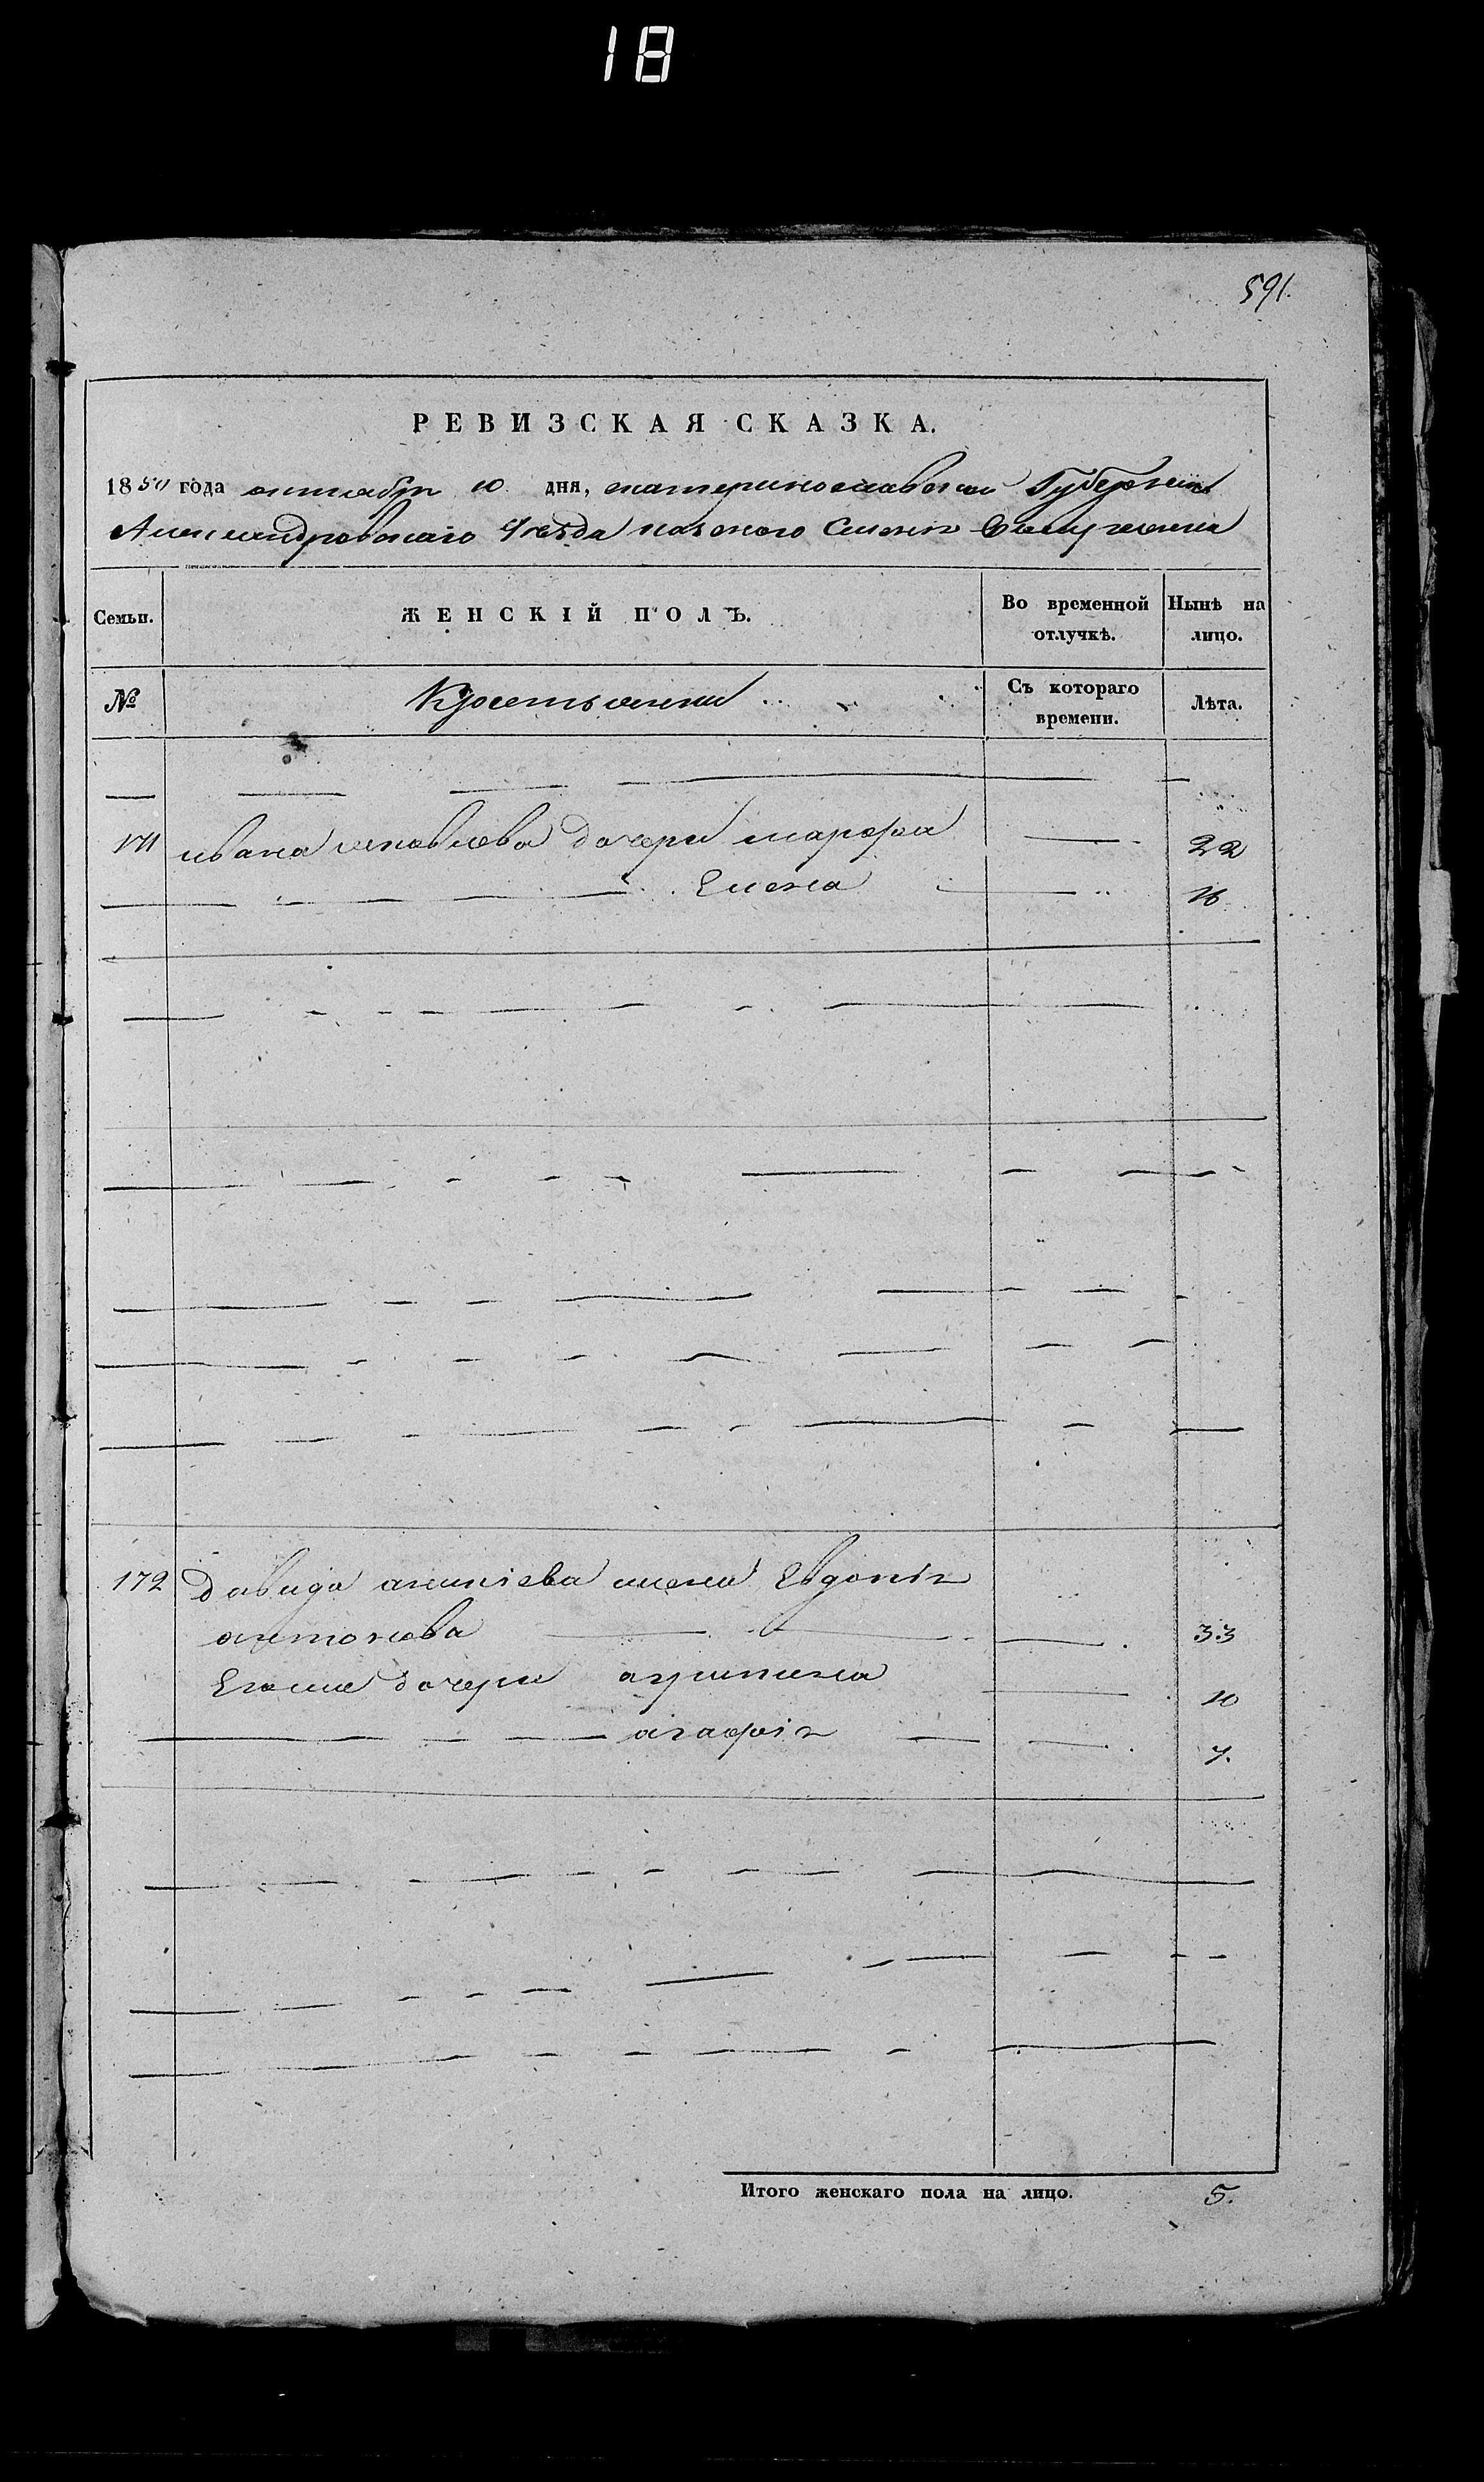 18
591.
РЕВИЗСКАЯ СКАЗКА.
1850 года октября 10 дня, екатеринославской Губернии
Александровскаго Уезда казеного
Семьи.
ЖЕНСКІЙ ПОЛЪ.
Во временной отлучкѣ.
Нынѣ на лицо.
№
Крестьянки
Съ котораго времени.
Лѣта.
171 ивана яковлева дочери марфа 22
Елена 16
172 давида ананіева жена Евдокія
антонова 33
Егоже дочери агрипина 10
агафія 7.
Итого женскаго пола на лицо. 5.